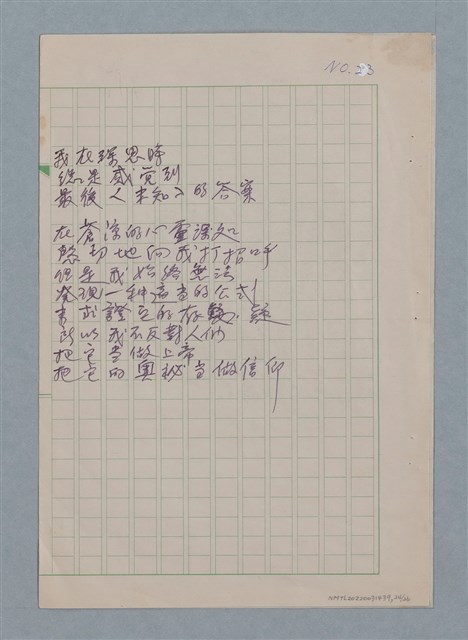 NO. 23
我在深思時
總是感覺到
最後《未知》的答案
在蒼涼的心靈深処
懇切地向我打招呼
但是我始終無法
發現一种適当的公式
來求證它的存在
所以我不反對人們
把它当做上帝
把它的奧秘当做信仰